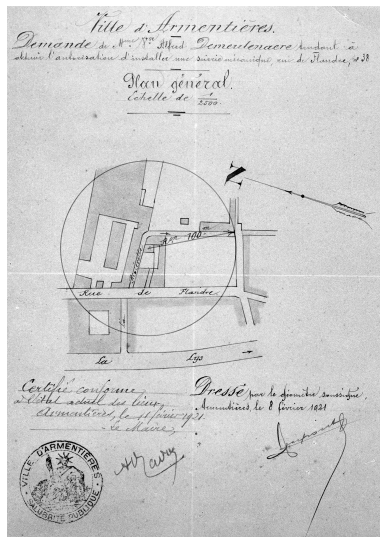 Ville d'Armentières.
Demande de Mme Vve Alfred Demeulenaere tendant à
obtenir l'autorisation d'installer une scierie mécanique rue de Flandre, n° 38
Plan général.
Echelle de 1/2500.
N
100 m
Rue de Flandre
La Lys
Certifié conforme
à l'état actuel des lieux
Armentières, le février 1921
Le Maire,
Dressé par le géomètre soussigné
Armentières, le 8 février 1921
VILLE D'ARMENTIÈRES
SALUBRITÉ PUBLIQUE